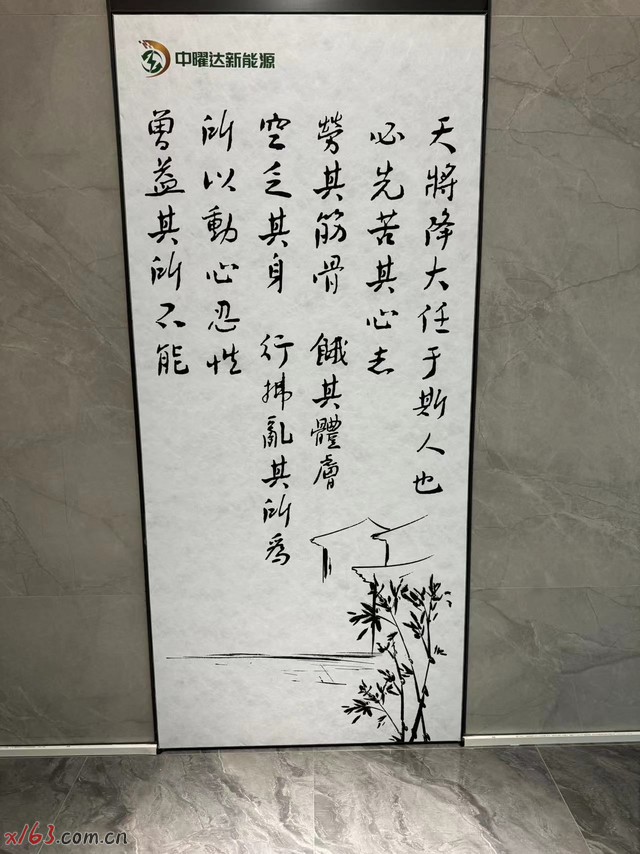 中曜达新能源
天將降大任于斯人也
必先苦其心志
勞其筋骨 餓其體膚
空乏其身 行拂亂其所為
所以動心忍性
曾益其所不能
x/63.com.cn